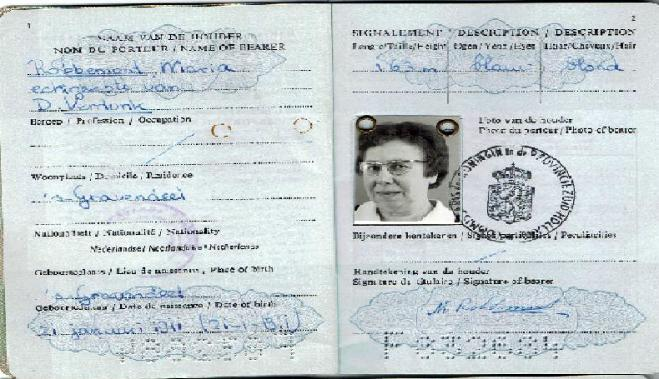 1
NAAM VAN DE HOUDER
NOM DU PORTEUR / NAME OF BEARER
Robbemont, Maria
echtgenote van
D. Verdonk
Beroep / Profession / Occupation
Woonplaats / Domicile / Residence
's Gravendeel
Nationaliteit / Nationalité / Nationality
Nederlandse / Néerlandaise / Netherlands
Geboorteplaats / Lieu de naissance / Place of birth
's Gravendeel
Geboortedatum / Date de naissance / Date of birth
21 januari 1911 (21-1-1911)
2
SIGNALEMENT / DESCRIPTION / DESCRIPTION
Lengte/Taille/Height Ogen/Yeux/Eyes Haar/Cheveux/Hair
163 m blauw blond
Foto van de houder
Photo du porteur / Photo of bearer
KONINGIN in de PROVINCIE ZUID-HOLL
Bijzondere kentekenen / Signes particuliers / Peculiarities
Handtekening van de houder
Signature du titulaire / Signature of bearer
M. Robbemont